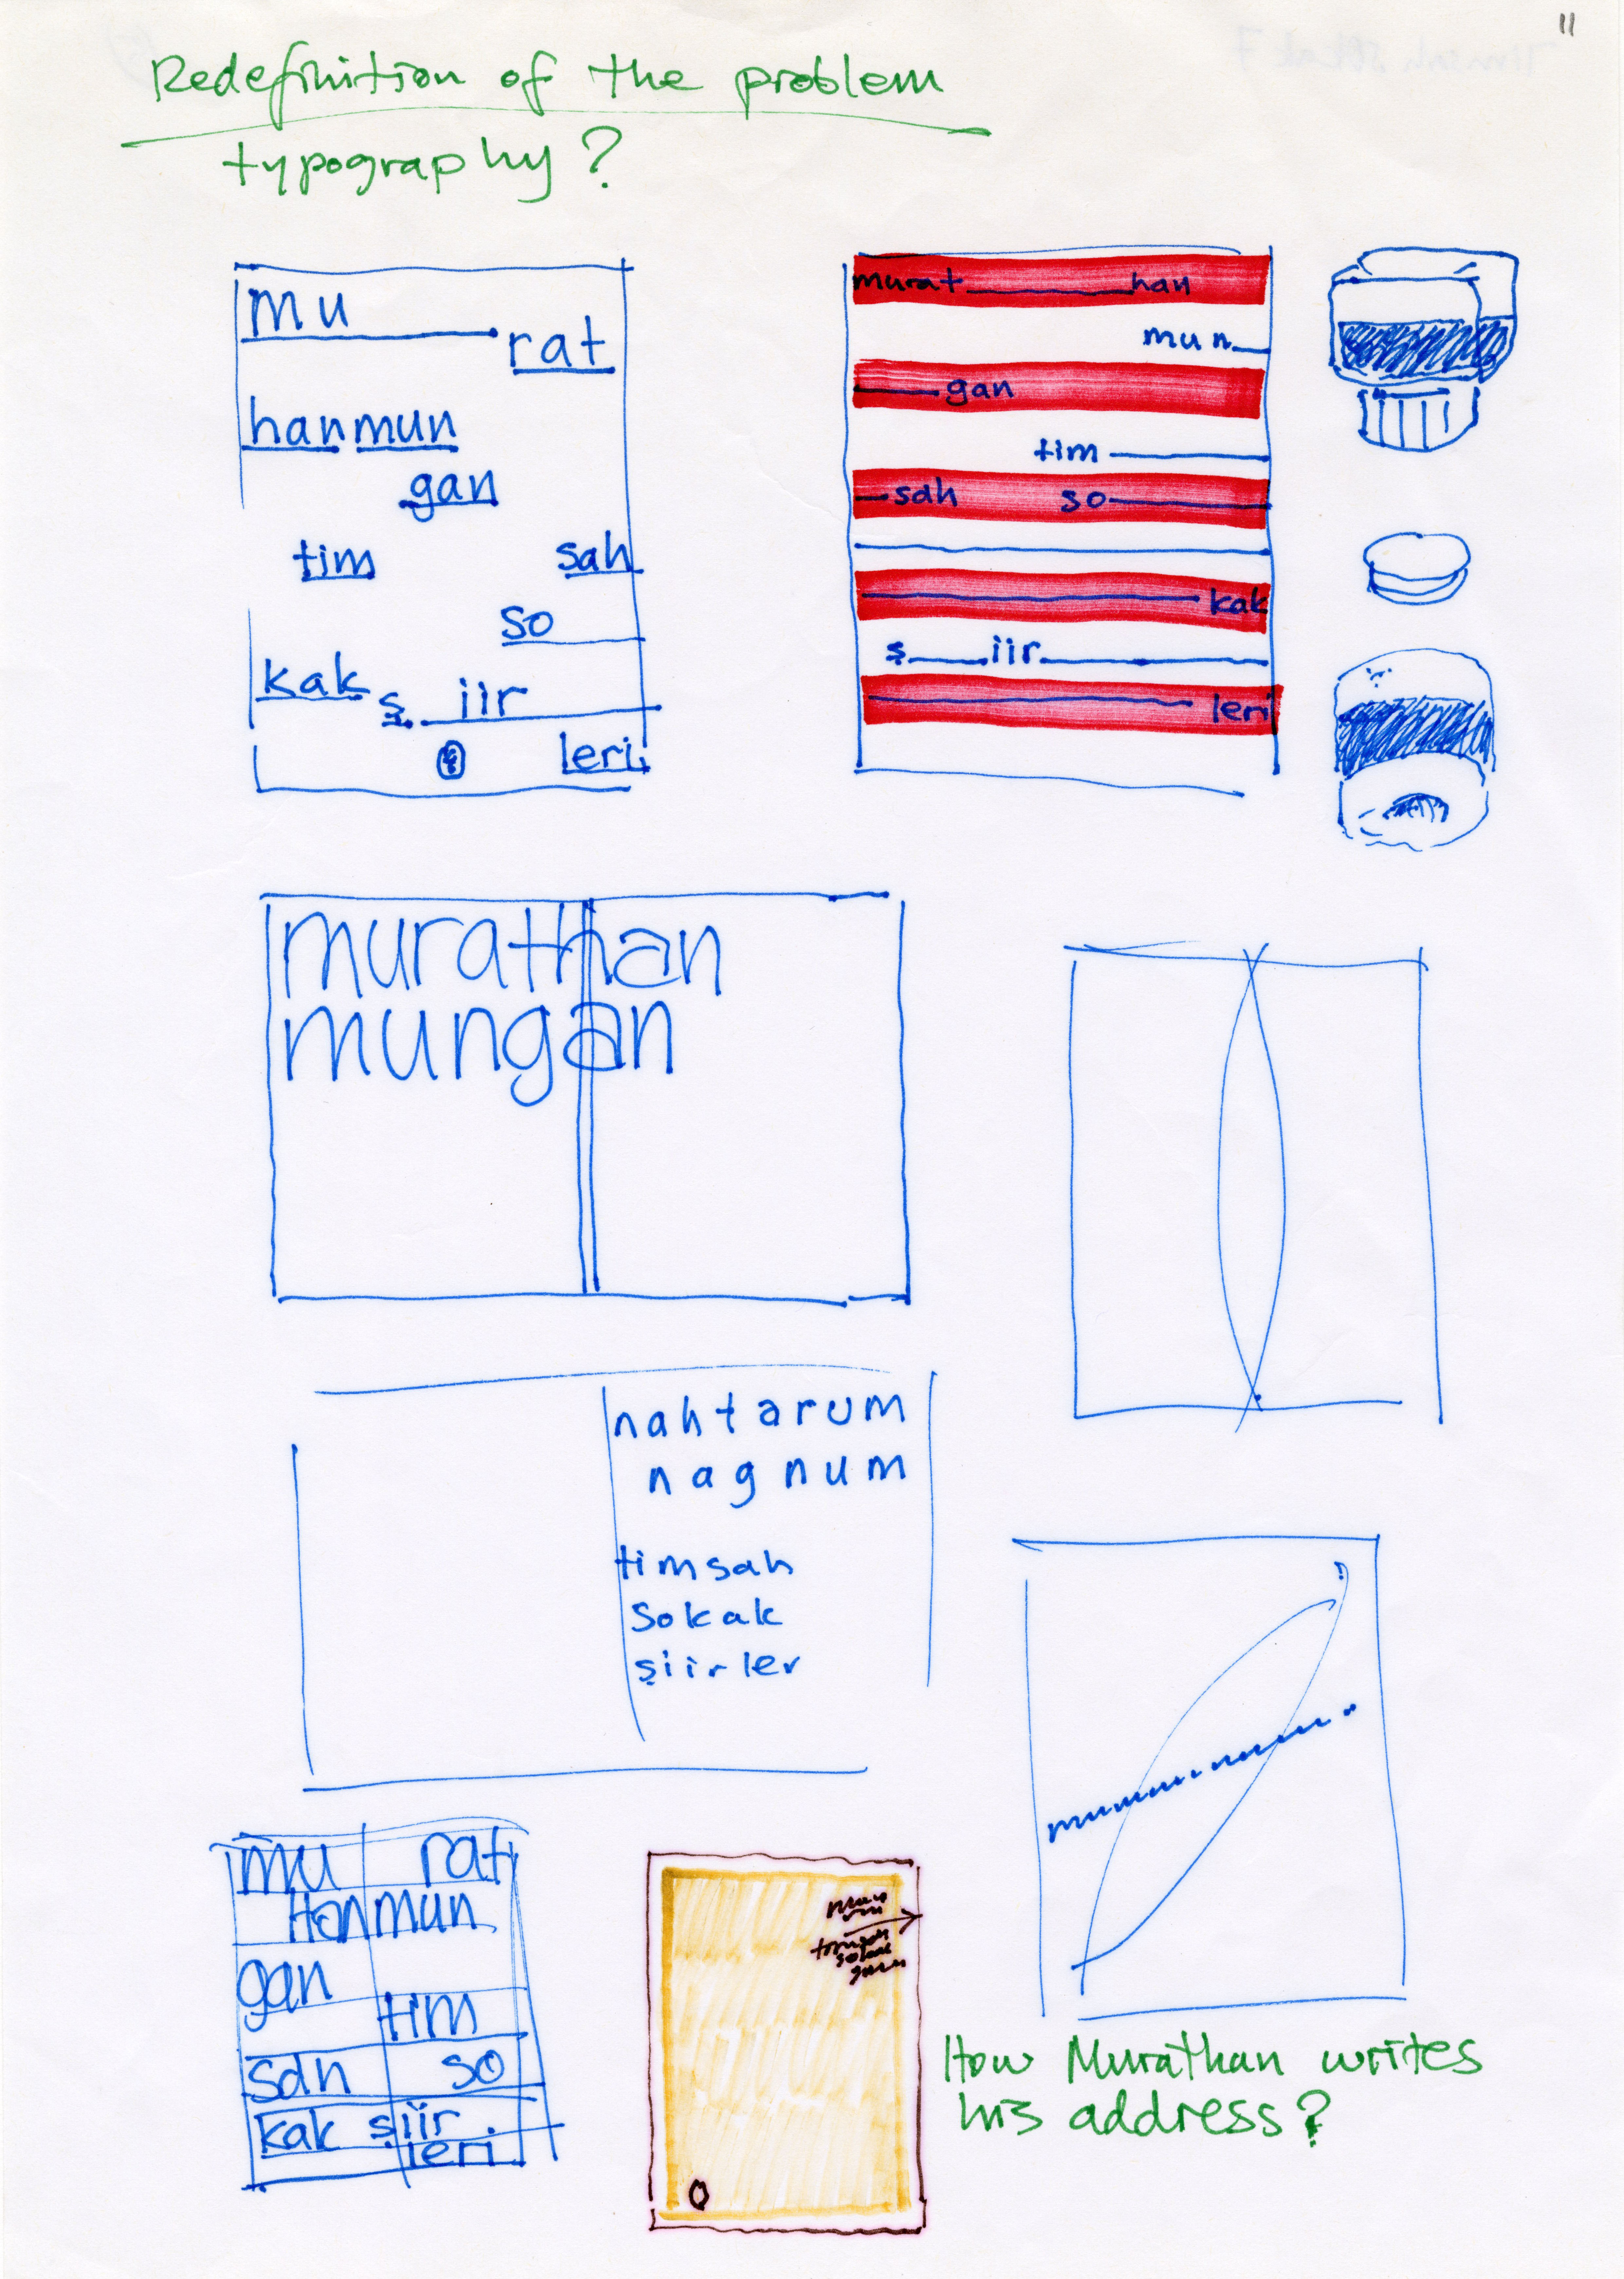 11
Redefinition of the problem
typography?
mu
rat
hanmun
gan
tim sah
so
kak ş iir
leri
murat han
mun
gan
tim
sah so
kak
ş iir
leri
murathan
mungan
nahtarum
nagnum
timsah
sokak
şiirler
mu rat
Hanmun
gan
tim
sah so
kak şiir
leri
How Murathan writes
his address?